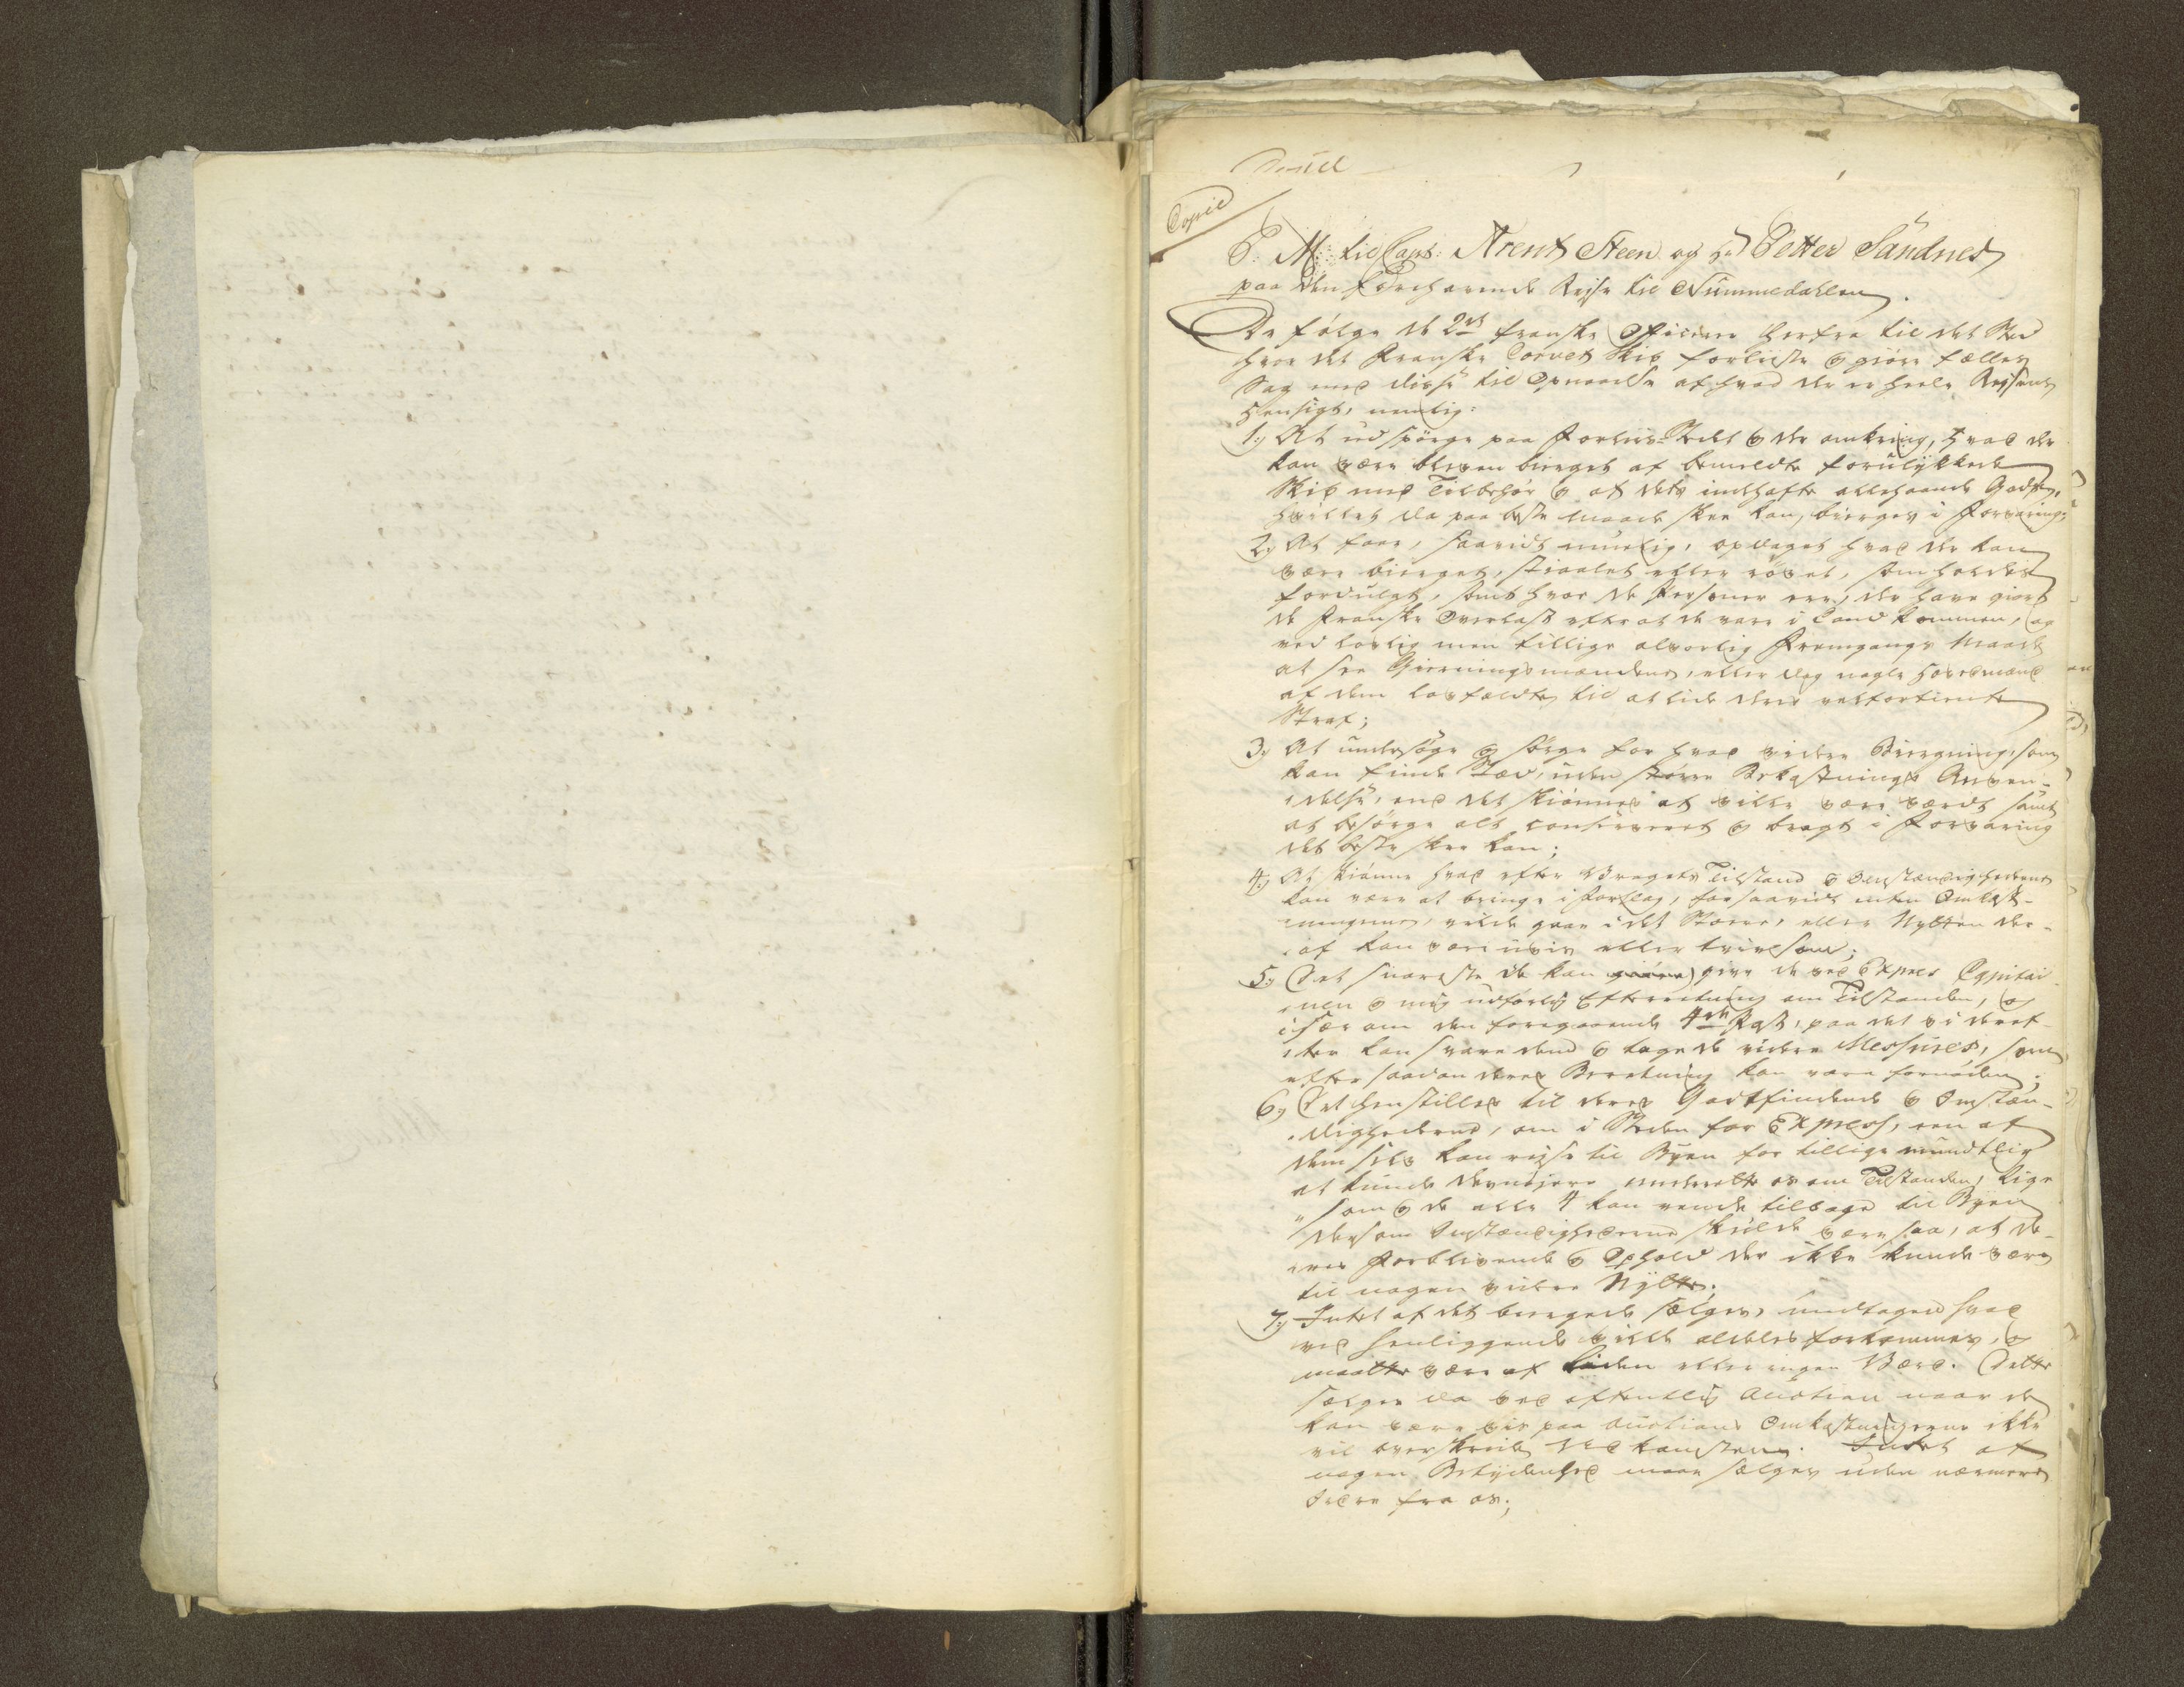 Copie
P. M: til Capt: Arent Steen og Hr Petter Sandnes
paa den forehavende Reise til Nummedahlen.
De følge de 2de franske Officerer herfra til det Sted
hvor det Franske Corvet Skib forliiste & giøre fælles
Sag med disse til Opnaaelse af hvad der er heele Reisens
Hensigt, nemlig:
1.) At udspörge paa Forliis-Stedet & der omkring, hvad der
kan være bleven bierget af bemeldte forulykkede
Skib med Tilbehör & af dets indehafte allehaande Gods,
hvilket da paa beste Maade skee kan, bierges i Forvaring;
2.) At faae, saavidt muelig, opdaget hvad der kan
være bierget, stiaalet eller røvet, som holdes
fordulgt, samt hvor de Personer ere, der have giort
de Franske Overlast efter at de vare i Land kommen, og
ved lovlig men tillige alvorlig Fremgangs Maade
at see Gierningsmændene, eller dog nogle Hovedmænd
af dem til at lide deres velfortiente
Straf;
3.) At undersöge & sörge for hvad videre Biergning, som
kan finde Stæd, uden större Bekostnings Anven-
delse, end det skiönnes at ville være værdt samt
at besörge alt conserveret & bragt i Forvaring
det beste skee kan;
4.) At skiönne hvad efter Vragets Tilstand & Omstændighederne
kan være at bringe i Forslag, forsaavidt enten Omkost-
ningerne, vilde gaae i det Større, eller Nytten der-
af kan være uvis eller tvivlsom;
5.) Det snareste de kan give de ved Expres Capitai-
nen & mig udförlig Efterretning om Tilstanden, og
især om den foregaaende 4de Post, paa det vi deref-
ter kan svare dem & tage de videre Mesures, som
efter saadan deres Beretning kan være fornöden;
6.) Det henstilles til deres Godtfindende & Omstæn-
dighederne, om i Steden for Express, een af
dem selv kan reise til Byen for tillige mundtlig
at kunde desnöjere underrette os om Tilstanden, lige
som & de alle 4 kan vende tilbage til Byen
dersom Omstændighederne skulde være saa, at de-
res Forblivende & Ophold der ikke kunde være
til nogen videre Nytte;
7.) Intet af det biergede sælges, undtagen hvad
ved Henliggende ville aldeles forkommes, &
maatte være af liden eller ingen Værd. Dette
sælges da ved offentlig Auction naar de
kan være vis paa Auctions Omkostningerne ikke
vil overskride. Intet af
nogen Betydenhed maae sælges uden nærmere
Ordre fra os;